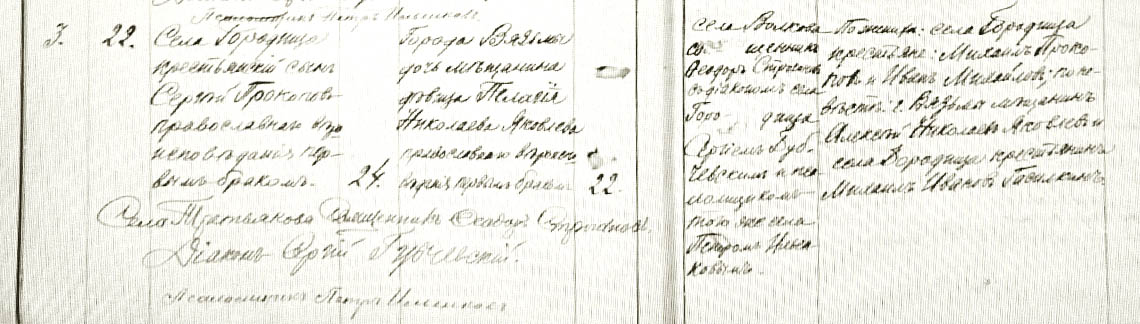 Псаломщикъ Петръ Ильенковъ.
3. 22. Села Городнища
крестьянскій сынъ
Сергѣй Прокоповъ
православнаго вѣро
исповѣданія, пер-
вымъ бракомъ. 24.
Города Вязьмы
дочь мѣщанина
дѣвица Пелагія
Николаева Яковлева
православнаго вѣроисп
первымъ бракомъ 22.
села Волкова
священникъ
Ѳеодоръ
съ діакономъ села
Городнища
Сергіемъ
и пса-
ломщикомъ
того же села
Петромъ Ильен-
ковымъ.
По женихѣ: села Городнища
крестьяне: Михаилъ Проко-
повъ и Иванъ Михайловъ; по не-
вѣстѣ: г. Вязьмы мѣщанинъ
Алексѣй Николаевъ Яковлевъ и
села Городнища крестьянинъ
Михаилъ Ивановъ
Села Священникъ Ѳеодоръ
Діаконъ Сергій
Псаломщикъ Петръ Ильенковъ